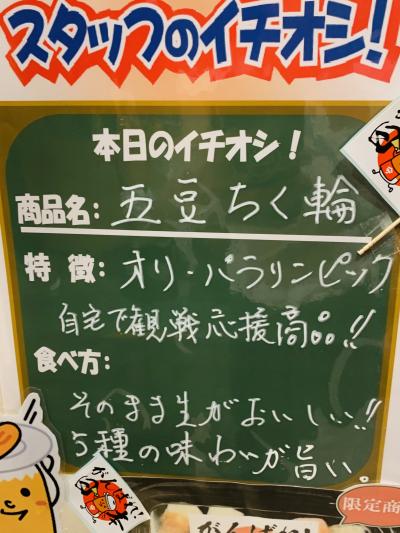 スタッフのイチオシ!
本日のイチオシ!
商品名: 五豆ちく輪
特徴: オリ・パラリンピック
自宅で観戦応援商品!!
食べ方:
そのまま生がおいしい!!
5種の味わいが旨い。
がんばれ!
限定商
がんばれ!